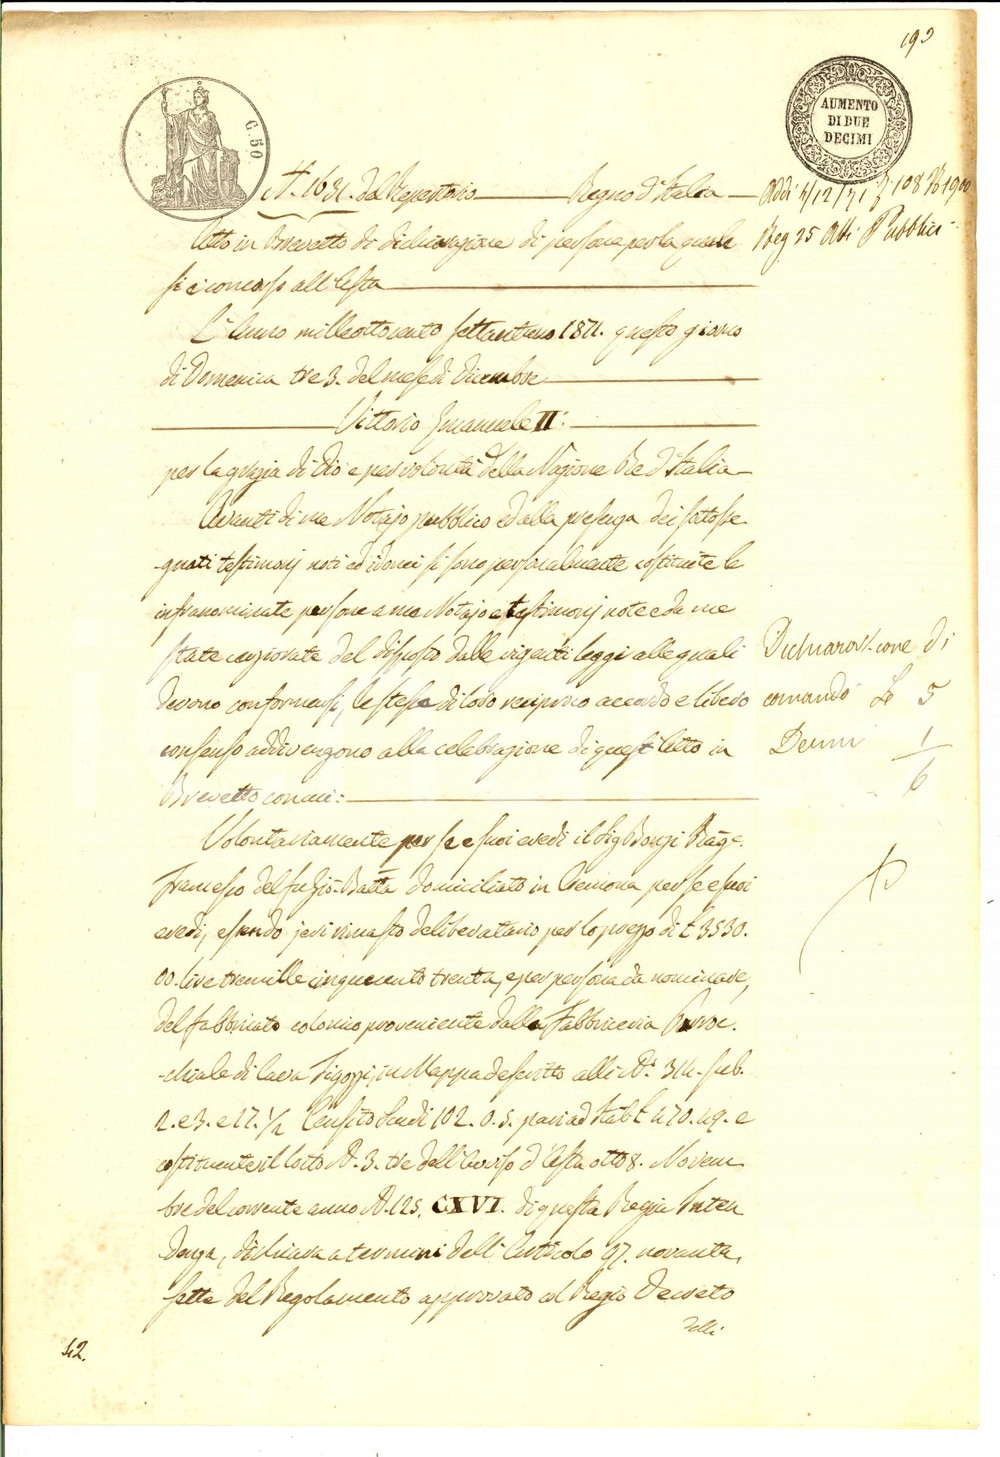 193
AUMENTO
DI DUE
DECIMI
C. 50
N. 1631. del Repertorio Regno d'Italia
Addì 4/12/71 f 108 N 1900
Reg 25 Atti Pubblici
Atto in Brevetto di dichiarazione di persona per la quale
si è concorso all'Asta
L'Anno milleottocento settantuno 1871. questo giorno
di Domenica tre 3. del mese di Dicembre
Vittorio Emanuele II:
per la grazia di Dio e per volontà della Nazione Re d'Italia
Avanti di me Notajo pubblico ed alla presenza dei sottose
gnati testimonj noti ed idonei si sono personalmente costituite le
infranominate persone a me Notajo e testimonj note e da me
state cerziorate del disposto dalle vigenti leggi alle quali
devono conformarsi, le stesse di loro reciproco accordo e libero
consenso addivengono alla celebrazione di quest'Atto in
Brevetto con cui:
Dichiarazione di
comando L. 5
Decimi 1
6
Volontariamente per se e suoi eredi il Sig Bonzi Rag.
Francesco del fu Gio. Batta domiciliato in Cremona per se e suoi
eredi, essendo jeri rimasto deliberatario per lo prezzo di £ 3530.
00. lire tremille cinquecento trenta, e per persona da nominare,
del fabbricato colonico proveniente dalla Fabbriceria Parroc.
chiale di Cava Tigozzi, in Mappa descritto alli N. 314. sub.
2. e 3. e 17. 1/2 Censito Scudi 102. 0. 5. pari ad £ 470. 49. e
costituente il lotto N. 3. tre dell'Avviso d'Asta otto 8. Novem
bre del corrente anno N. 125. CXVI. di questa Regia Inten
denza, dichiara a termini dell'Articolo 97. novanta,
sette del Regolamento approvato col Regio Decreto
delli
42.